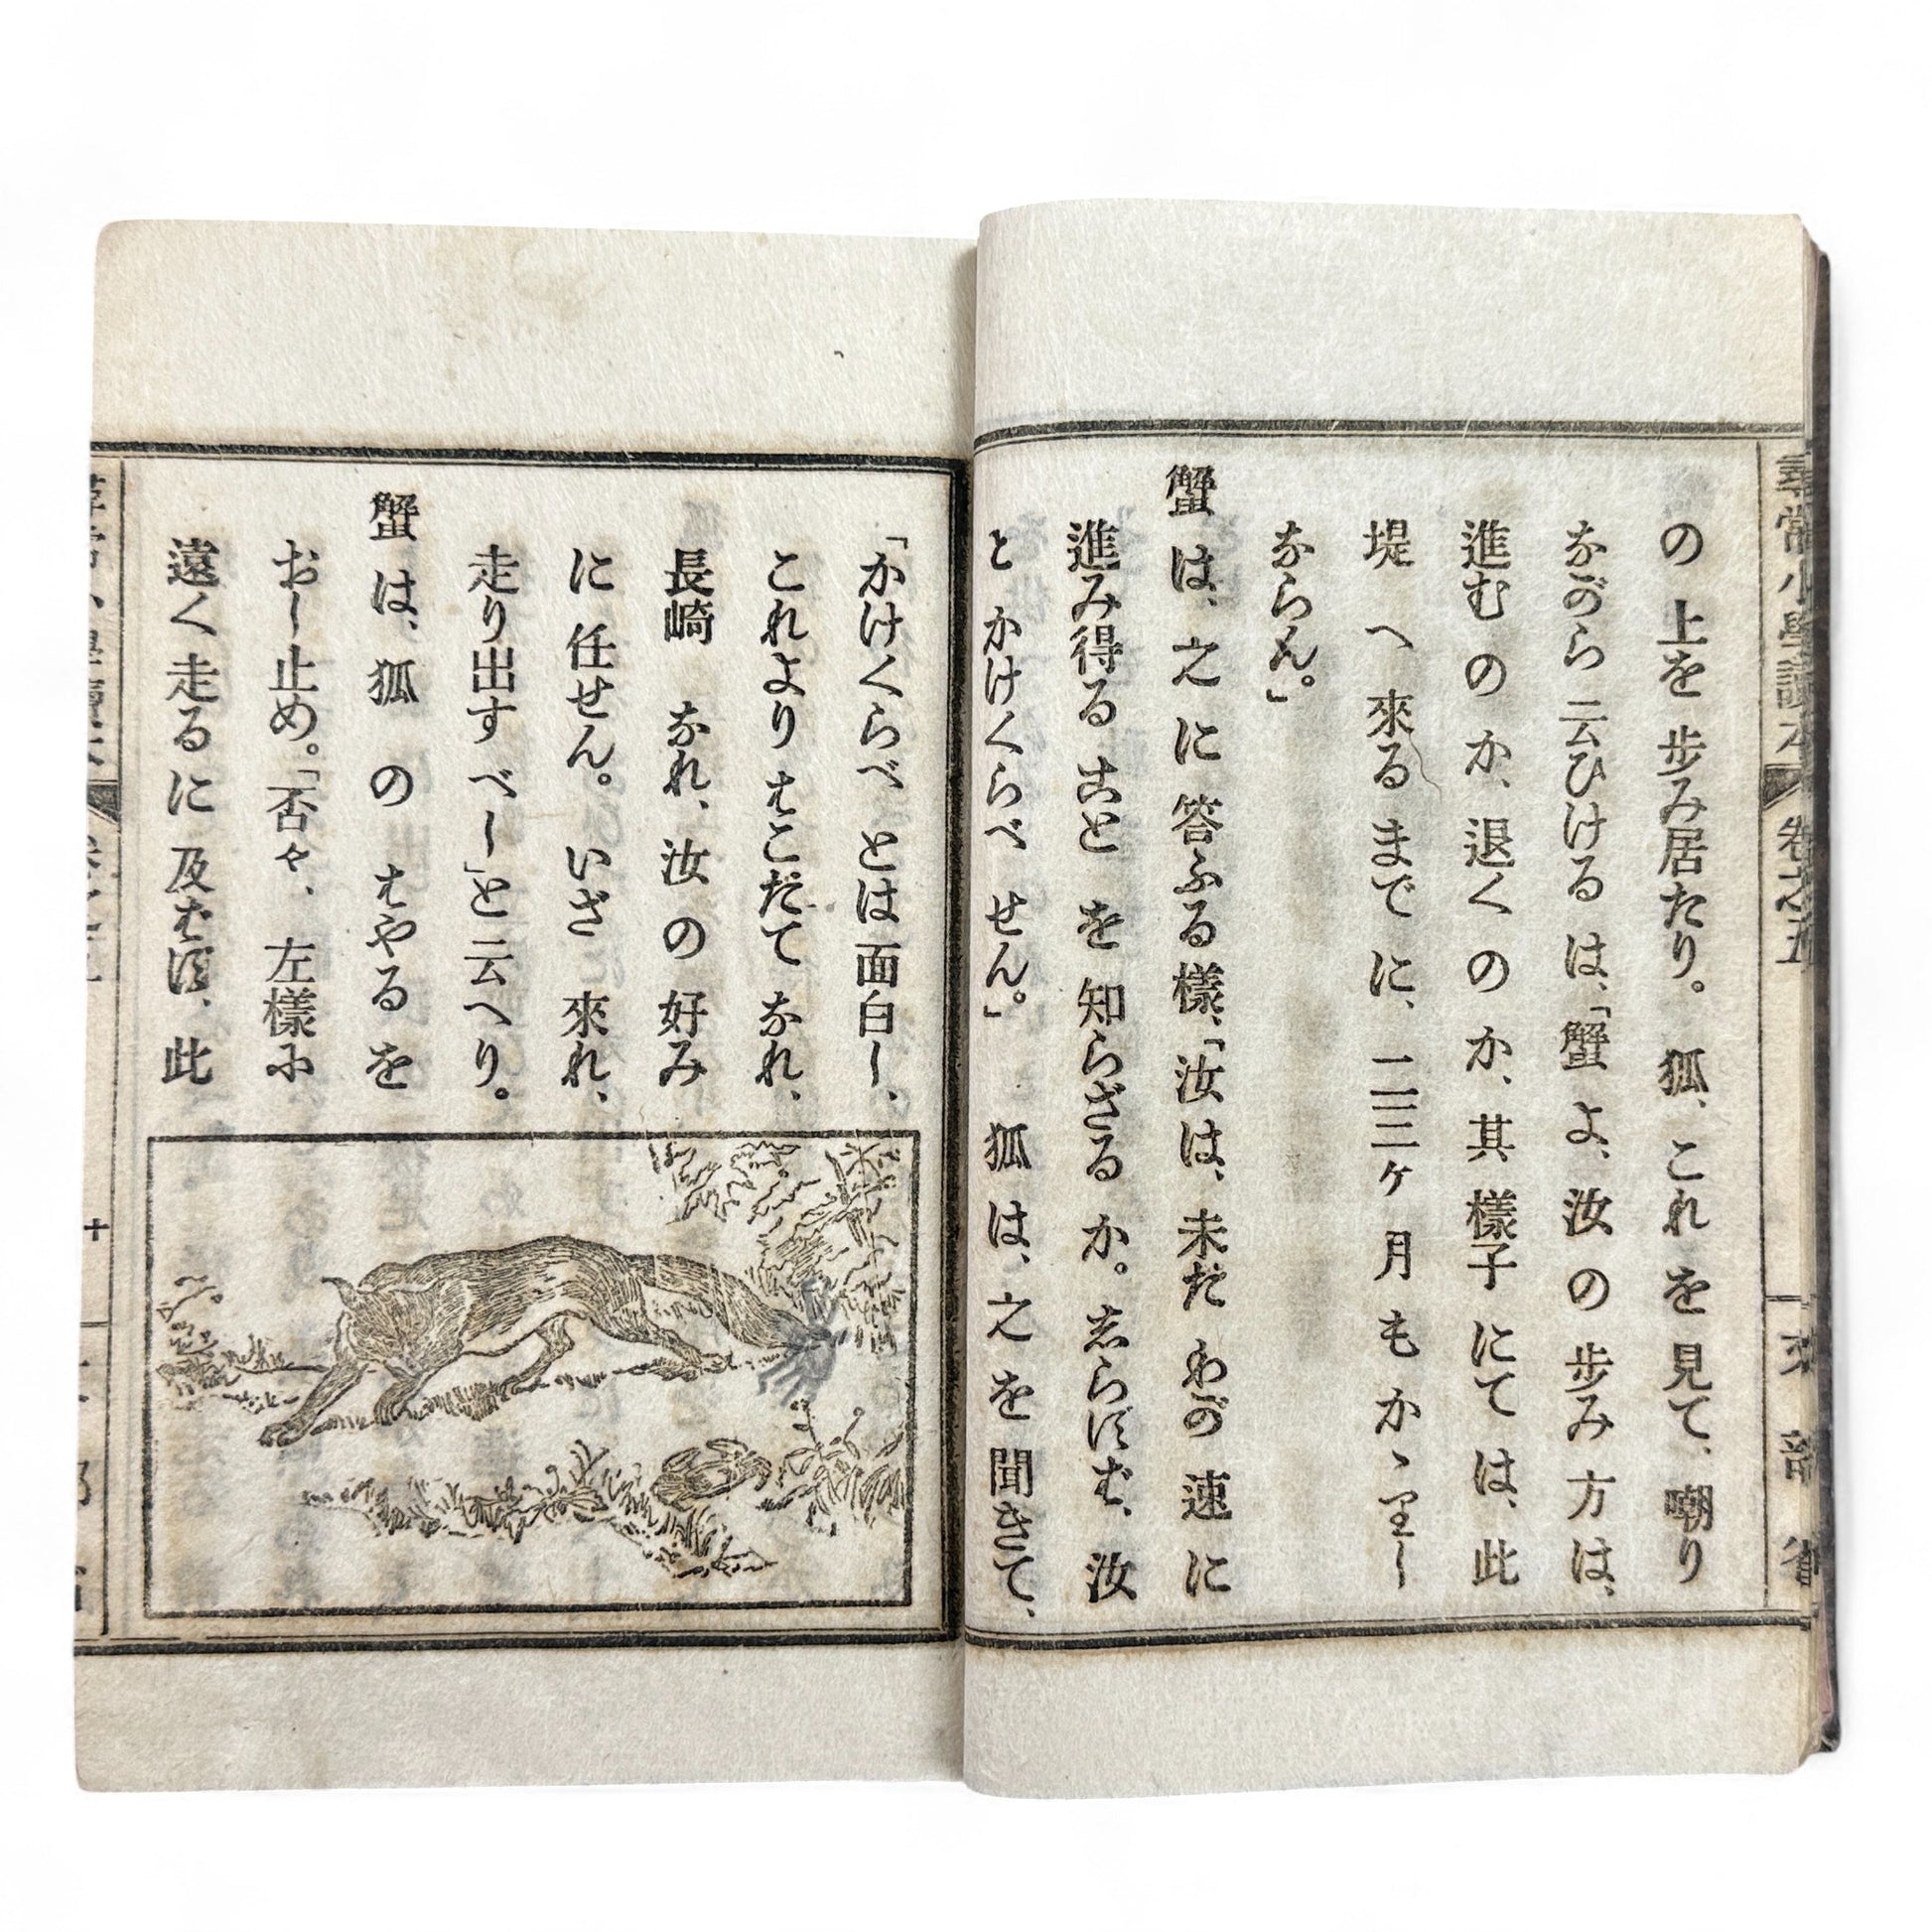 尋常小學讀本 卷之五 文部省
の上を歩み居たり。狐、これを見て、嘲り
ながら云ひけるは、「蟹よ、汝の歩み方は、
進むのか、退くのか、其樣子にては、此
堤へ來るまでに、二三ヶ月もかゝりし
ならん。」
蟹は、之に答ふる樣、「汝は、未だわが速に
進み得ることを知らざるか。志らずば、汝
とかけくらべせん。」狐は、之を聞きて、
「かけくらべとは面白し、
これよりはこだてなれ、
長崎なれ、汝の好み
に任せん。いざ來れ、
走り出すべし」と云へり。
蟹は、狐のはやるを
おし止め。「否々、左樣に
遠く走るに及ばず、此
十